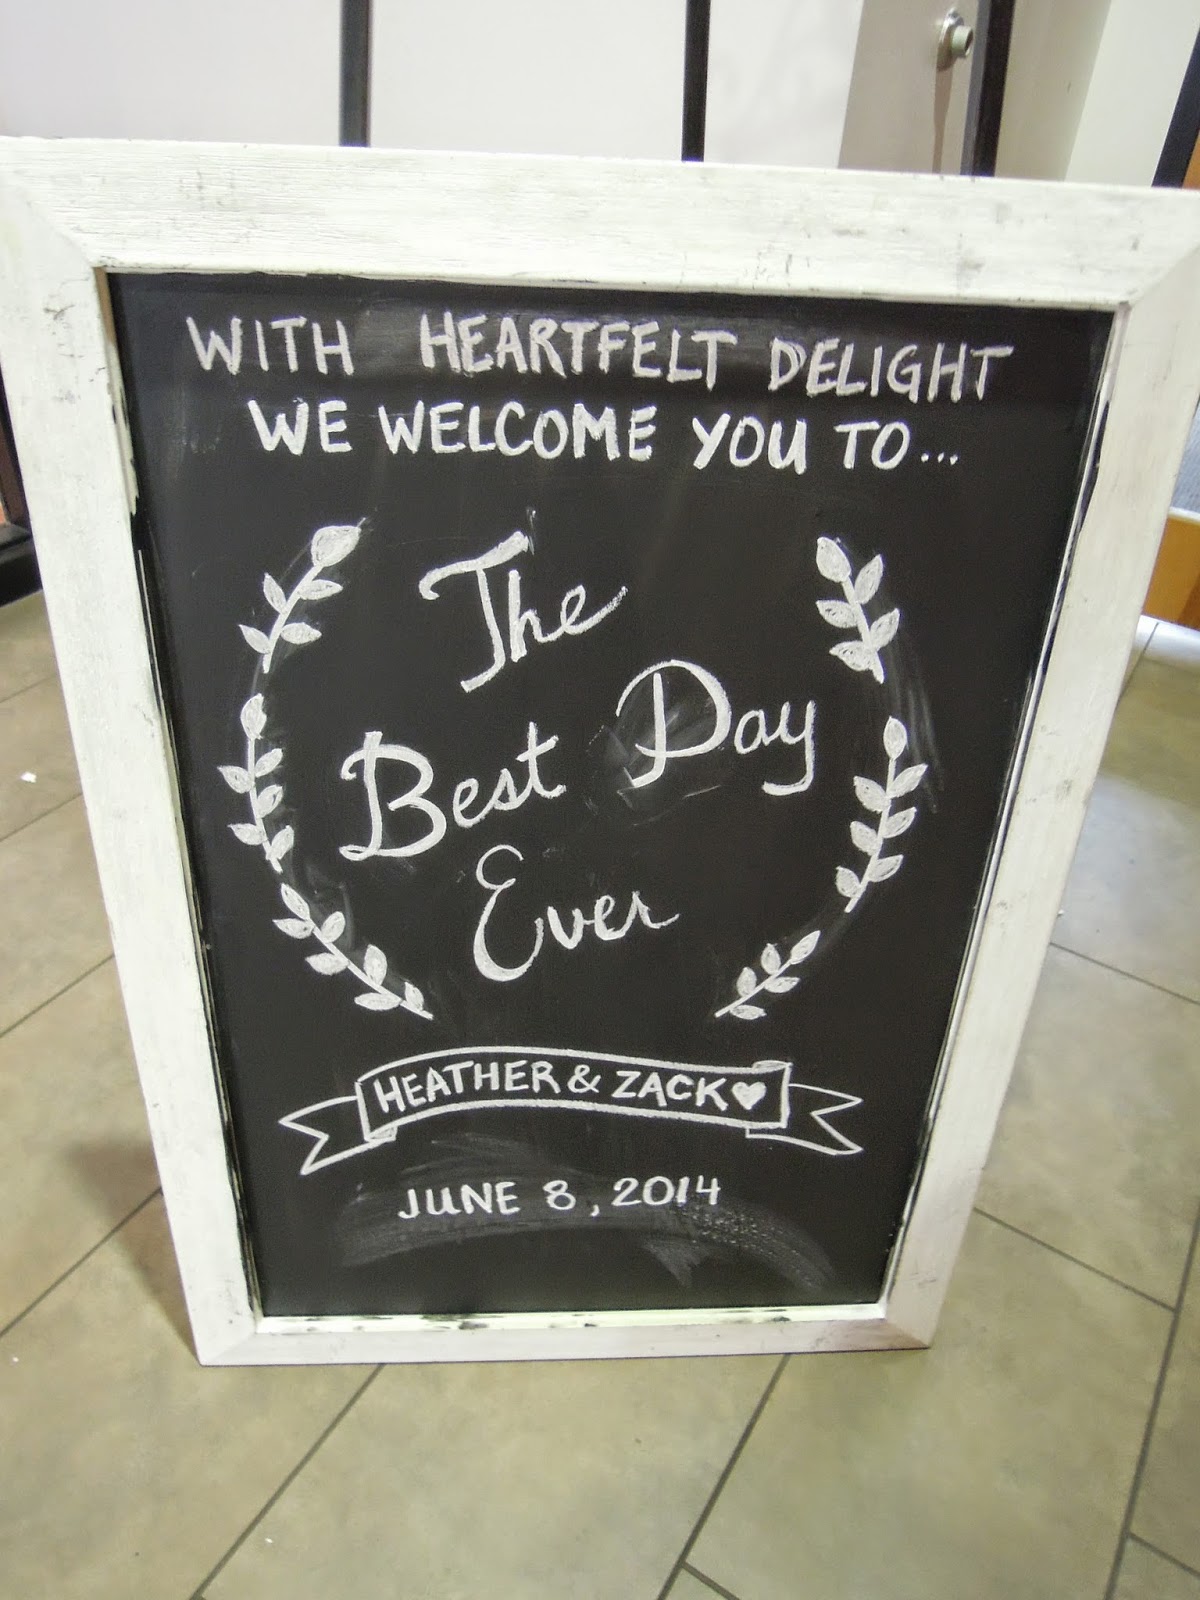 WITH HEARTFELT DELIGHT
WE WELCOME YOU TO...
The
Best Day
Ever
HEATHER & ZACK♥
JUNE 8, 2014